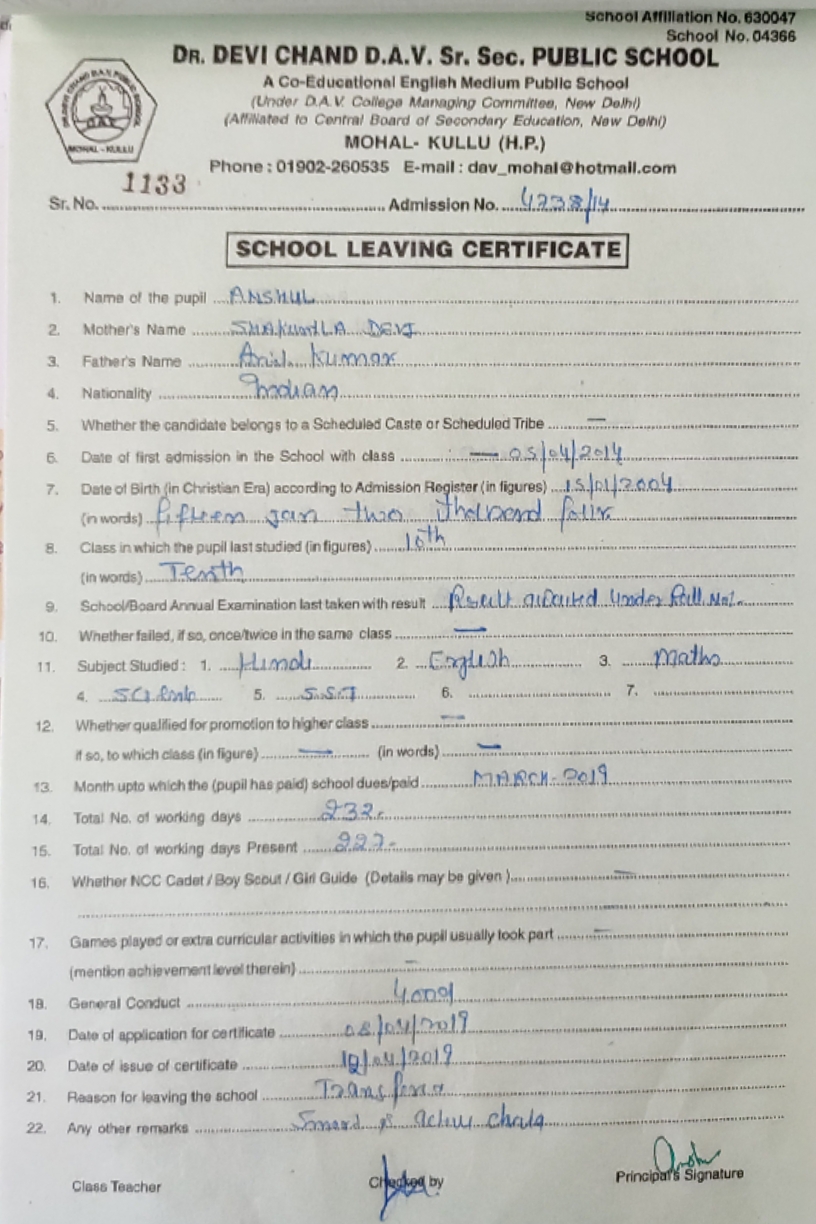 School Affiliation No. 630047
School No. 04366
DR. DEVI CHAND D.A.V. Sr. Sec. PUBLIC SCHOOL
A Co-Educational English Medium Public School
(Under D.A.V. College Managing Committee, New Delhi)
(Affiliated to Central Board of Secondary Education, New Delhi)
MOHAL- KULLU (H.P.)
Phone : 01902-260535 E-mail : dav_mohal@hotmail.com
DR. DEVI CHAND D.A.V. PUBLIC SCHOOL
DAV
MOHAL - KULLU
Sr. No. 1133 Admission No. 4238/14
SCHOOL LEAVING CERTIFICATE
1. Name of the pupil ANSHUL
2. Mother's Name SHAKUNTLA DEVI
3. Father's Name Anil Kumar
4. Nationality Indian
5. Whether the candidate belongs to a Scheduled Caste or Scheduled Tribe —
6. Date of first admission in the School with class — 05/04/2014
7. Date of Birth (in Christian Era) according to Admission Register (in figures) 15/01/2004
(in words) fifteen jan two thousand four
8. Class in which the pupil last studied (in figures) 10th
(in words) Tenth
9. School/Board Annual Examination last taken with result Result awaited Under Roll No.
10. Whether failed, if so, once/twice in the same class —
11. Subject Studied : 1. Hindi 2. English 3. Maths
4. Science 5. S.S.T 6. 7.
12. Whether qualified for promotion to higher class —
if so, to which class (in figure) — (in words) —
13. Month upto which the (pupil has paid) school dues/paid MARCH-2019
14. Total No. of working days 232
15. Total No. of working days Present 227
16. Whether NCC Cadet / Boy Scout / Girl Guide (Details may be given ) —
17. Games played or extra curricular activities in which the pupil usually took part —
(mention achievement level therein) —
18. General Conduct Good
19. Date of application for certificate 08/04/2019
20. Date of issue of certificate 10/04/2019
21. Reason for leaving the school
22. Any other remarks
Class Teacher Checked by Principal's Signature